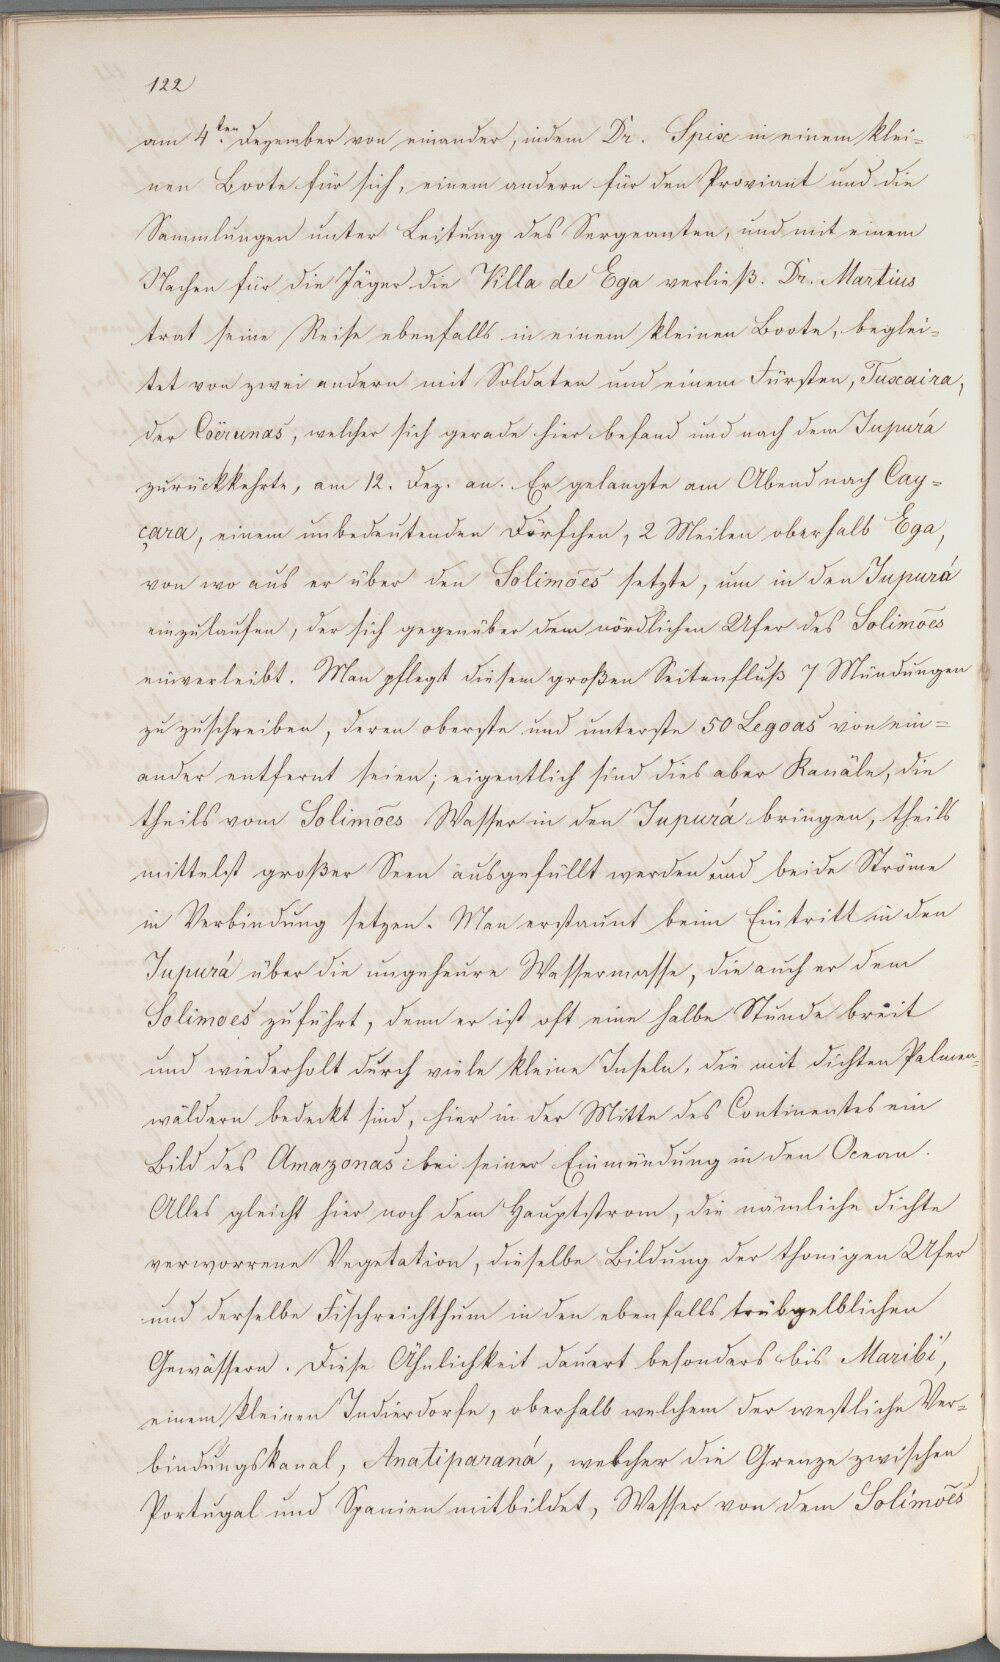 122
am 4.ten Dezember von einander, indem Dr. Spix in einem klei=
nen Boote für sich, einem andern für den Proviant und die
Sammlungen unter Leitung des Sergeanten, und mit einem
Nachen für die Jäger die Villa de Ega verließ. Dr. Martius
trat seine Reise ebenfalls in einem kleinen Boote, beglei=
tet von zwei andern mit Soldaten und einem Fürsten, Tuxaira,
der Coërunas, welcher sich gerade hier befand und nach dem Jupurá
zurückkehrte, am 12. Dez. an. Er gelangte am Abend nach Cay=
çara, einem unbedeutenden Dörfchen, 2 Meilen oberhalb Ega,
von wo aus er über den Solimoẽs setzte, um in den Jupurá
einzulaufen, der sich gegenüber dem nördlichen Ufer des Solimoẽs
einverleibt. Man pflegt diesem großen Seitenfluß 7 Mündungen
zu zuschreiben, deren oberste und unterste 50 Legoas von ein=
ander entfernt seien; eigentlich sind dies aber Kanäle, die
theils vom Solimoẽs Wasser in den Jupurá bringen, theils
mittelst großer Seen ausgefüllt werden und beide Ströme
in Verbindung setzen. Man erstaunt beim Eintritt in den
Jupurá über die ungeheure Wassermasse, die auch er dem
Solimoes zuführt, denn er ist oft eine halbe Stunde breit
und wiederholt durch viele kleine Inseln, die mit dichten Palmen=
wäldern bedeckt sind, hier in der Mitte des Continentes ein
Bild des Amazonas bei seiner Einmündung in den Ocean.
Alles gleicht hier noch dem Hauptstrom, die nämliche dichte
verworrene Vegetation, dieselbe Bildung der thonigen Ufer
und derselbe Fischreichthum in den ebenfalls trübgelblichen
Gewässern. Diese Ähnlichkeit dauert besonders bis Maribi,
einem kleinen Indierdorfe, oberhalb welchem der westliche Ver=
bindungskanal, Anatiparaná, welcher die Grenze zwischen
Portugal und Spanien mitbildet, Wasser von dem Solimoẽs